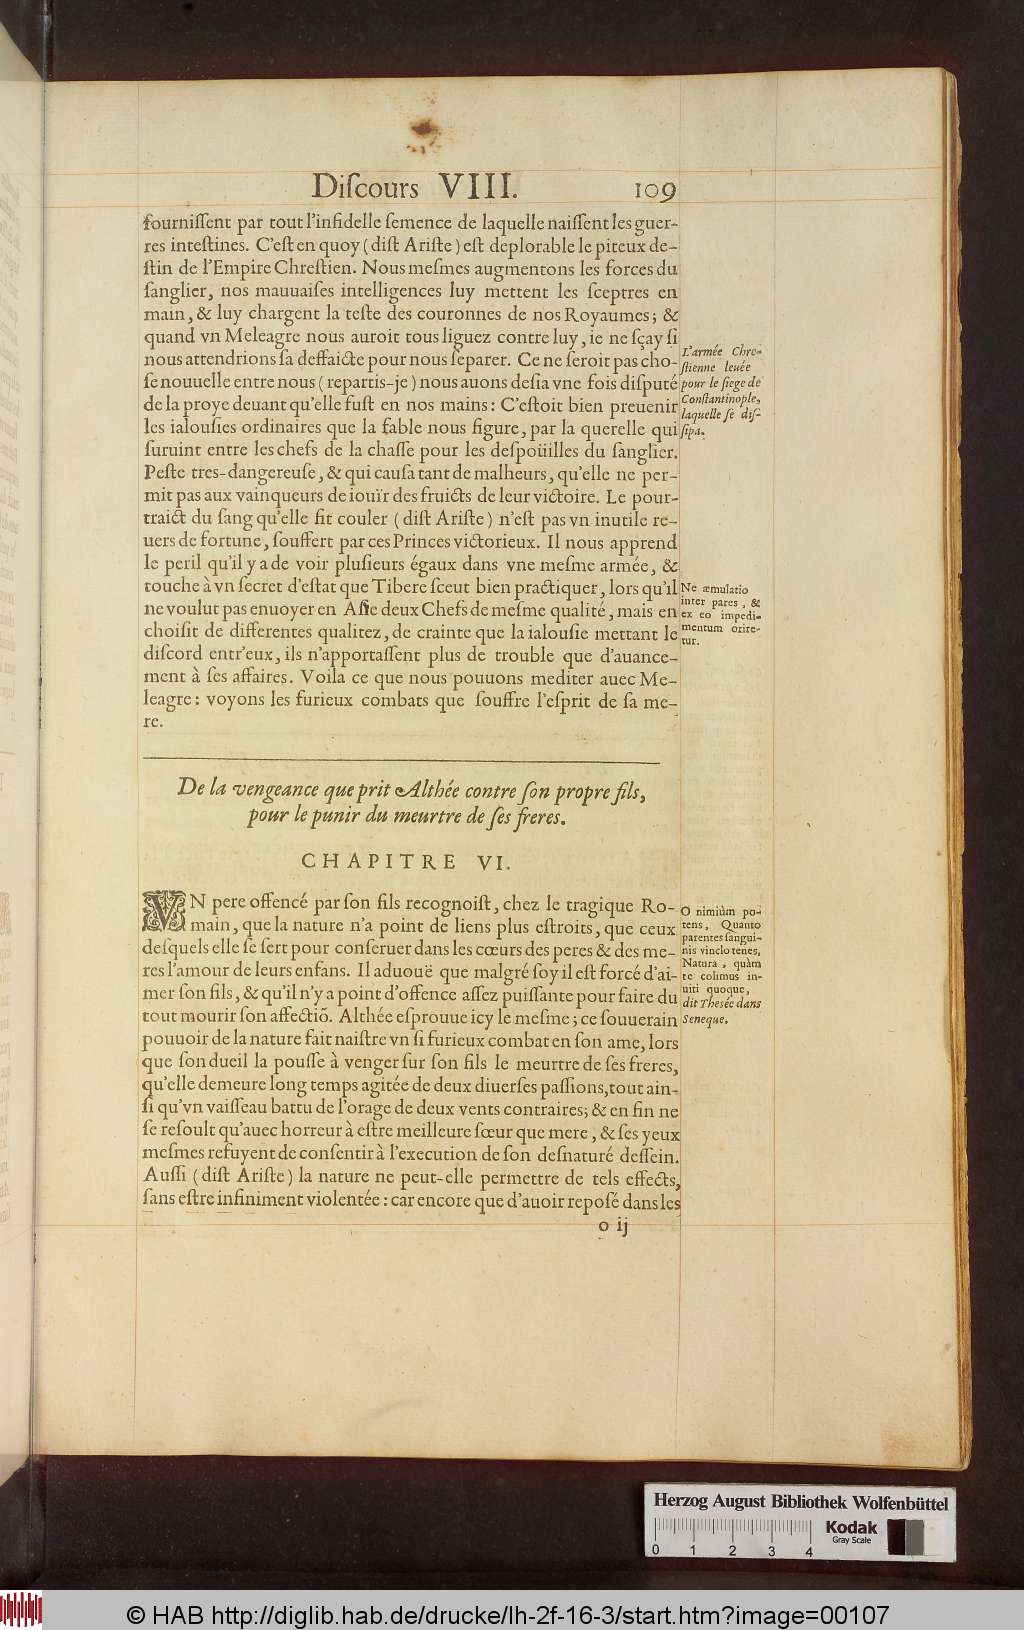 Diſcours VIII. 109
fourniſſent par tout l'infidelle ſemence de laquelle naiſſent les guer-
res inteſtines. C'eſt en quoy (diſt Ariſte) eſt deplorable le piteux de-
ſtin de l'Empire Chreſtien. Nous meſmes augmentons les forces du
ſanglier, nos mauuaiſes intelligences luy mettent les ſceptres en
main, & luy chargent la teſte des couronnes de nos Royaumes; &
quand vn Meleagre nous auroit tous liguez contre luy, ie ne ſçay ſi
nous attendrions ſa deffaicte pour nous ſeparer. Ce ne ſeroit pas cho-
ſe nouuelle entre nous (repartis-je) nous auons deſia vne fois diſputé
de la proye deuant qu'elle fuſt en nos mains: C'eſtoit bien preuenir
les ialouſies ordinaires que la fable nous figure, par la querelle qui
ſuruint entre les chefs de la chaſſe pour les deſpoüilles du ſanglier.
Peſte tres-dangereuſe, & qui cauſa tant de malheurs, qu'elle ne per-
mit pas aux vainqueurs de iouïr des fruicts de leur victoire. Le pour-
traict du ſang qu'elle fit couler (diſt Ariſte) n'eſt pas vn inutile re-
uers de fortune, ſouffert par ces Princes victorieux. Il nous apprend
le peril qu'il y a de voir pluſieurs égaux dans vne meſme armée, &
touche à vn ſecret d'eſtat que Tibere ſceut bien practiquer, lors qu'il
ne voulut pas enuoyer en Aſie deux Chefs de meſme qualité, mais en
choiſit de differentes qualitez, de crainte que la ialouſie mettant le
diſcord entr'eux, ils n'apportaſſent plus de trouble que d'auance-
ment à ſes affaires. Voila ce que nous pouuons mediter auec Me-
leagre: voyons les furieux combats que ſouffre l'eſprit de ſa me-
re.
L'armée Chre-
ſtienne leuée
pour le ſiege de
Conſtantinople,
laquelle ſe diſ-
ſipa.
Ne æmulatio
inter pares, &
ex eo impedi-
mentum orire-
tur.
De la vengeance que prit Althée contre ſon propre fils,
pour le punir du meurtre de ſes freres.
CHAPITRE VI.
VN pere offencé par ſon fils recognoiſt, chez le tragique Ro-
main, que la nature n'a point de liens plus eſtroits, que ceux
deſquels elle ſe ſert pour conſeruer dans les cœurs des peres & des me-
res l'amour de leurs enfans. Il aduouë que malgré ſoy il eſt forcé d'ai-
mer ſon fils, & qu'il n'y a point d'offence aſſez puiſſante pour faire du
tout mourir ſon affectiō. Althée eſprouue icy le meſme; ce ſouuerain
pouuoir de la nature fait naiſtre vn ſi furieux combat en ſon ame, lors
que ſon dueil la pouſſe à venger ſur ſon fils le meurtre de ſes freres,
qu'elle demeure long temps agitée de deux diuerſes paſſions, tout ain-
ſi qu'vn vaiſſeau battu de l'orage de deux vents contraires; & en fin ne
ſe reſoult qu'auec horreur à eſtre meilleure ſœur que mere, & ſes yeux
meſmes refuyent de conſentir à l'execution de ſon deſnaturé deſſein.
Auſſi (diſt Ariſte) la nature ne peut-elle permettre de tels effects,
ſans eſtre infiniment violentée: car encore que d'auoir repoſé dans les
O nimiùm po-
tens, Quanto
parentes ſangui-
nis vinclo tenes,
Natura, quàm
te colimus in-
uiti quoque,
dit Theſée dans
Seneque.
o ij
Herzog August Bibliothek Wolfenbüttel
Kodak
Gray Scale
0 1 2 3 4
© HAB http://diglib.hab.de/drucke/lh-2f-16-3/start.htm?image=00107